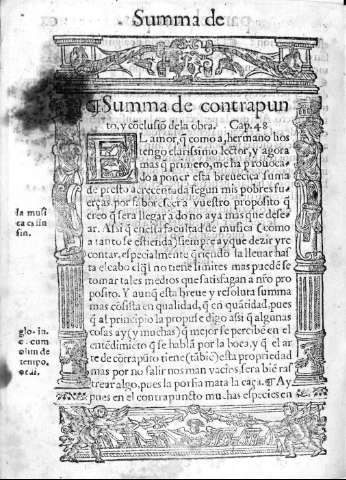 Summa de
¶Summa de contrapun
to, y cõclusiõ de la obra. Cap. 48
EL amor, q̃ como a, hermano hos
tengo clarissimo lector, y agora
mas q̃ primero, me ha prouoca
do a poner esta breuecica suma
de presto acrecentada segun mis pobres fu-
erças por saber si sera vuestro proposito q̃
creo q̃ sera llegar a do no aya mas que dese-
ar. Assi q̃ en esta facultad de musica (como
a tanto se estienda) siempre ay que dezir y re
contar, especialmente q̃riendo la lleuar has
ta el cabo el q̃l no tiene limites mas puedẽ se
tomar tales medios que satisfagan a nr̃o pro
posito. Y aunq̃ esta breue y resoluta summa
mas cõsista en qualidad, q̃ en quãtidad, pues
q̃ al principio la propuse digo assi q̃ algunas
cosas ay (y muchas) q̃ mejor se percibẽ en el
entẽdimiẽto q̃ se hablã por la boca, y q̃ el ar
te de cõtrapũto tiene (tãbiẽ) esta propriedad
mas por no salir nos man vacios sera biẽ ras
trear algo, pues la porfia mata la caça. ¶ Ay
pues en el contrapuncto muchas especies en
la musi
ca es sin
fin.
glo. in.
c. cum
olim de
tempo.
ordi.